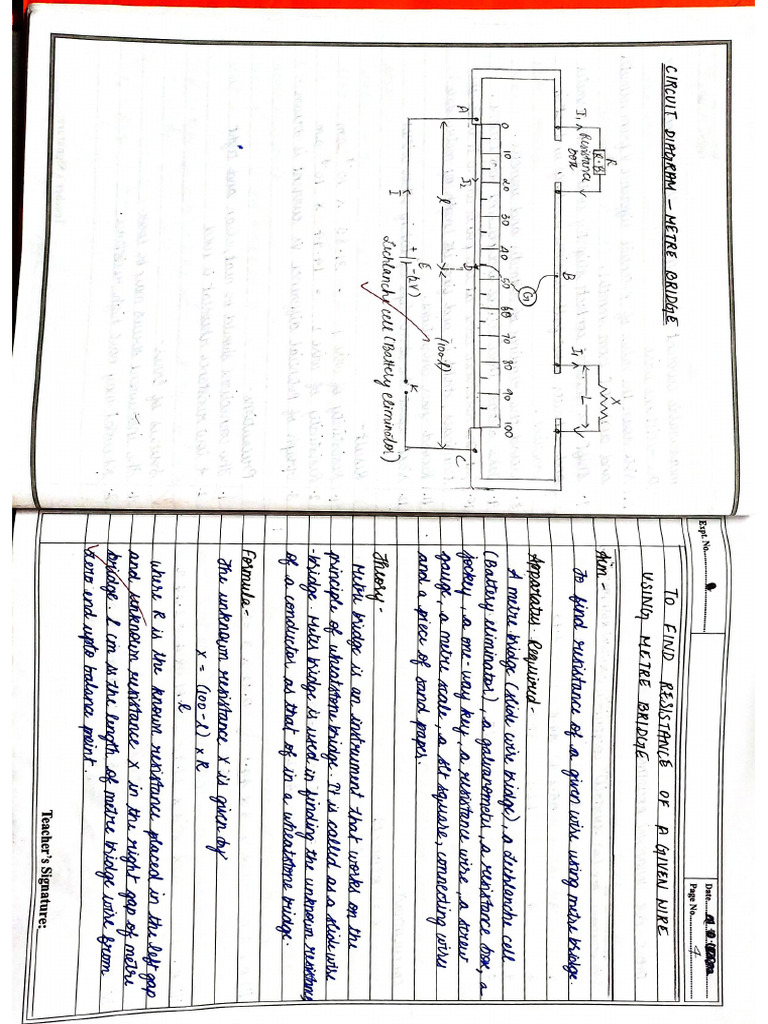 CIRCUIT DIAGRAM - METRE BRIDGE
R
R·B
I₁
Resistance
box
B
I₁
X
L
G
A
0 10 20 30 40 50 60 70 80 90 100
C
I₂
D
l
(100-l)
E
I
+ - (2V)
K
Leclanche cell (Battery eliminator)
Expt. No.
Date
Page No. 4
TO FIND RESISTANCE OF A GIVEN WIRE
USING METRE BRIDGE
Aim -
To find resistance of a given wire using metre bridge.
Apparatus Required -
A metre bridge (slide wire bridge), a Leclanche cell
(Battery eliminator), a galvanometer, a resistance box, a
jockey, a one-way key, a resistance wire, a screw
gauge, a metre scale, a set square, connecting wires
and a piece of sand paper.
Theory -
Meter bridge is an instrument that works on the
principle of wheatstone bridge. It is called as a slide wire
-bridge. Meter bridge is used in finding the unknown resistance
of a conductor as that of in a wheatstone bridge.
Formula -
The unknown resistance X is given by
X = (100-l) × R
l
where R is the known resistance placed in the left gap
and unknown resistance X in the right gap of metre
bridge. l cm is the length of metre bridge wire from
zero end upto balance point.
Teacher's Signature: